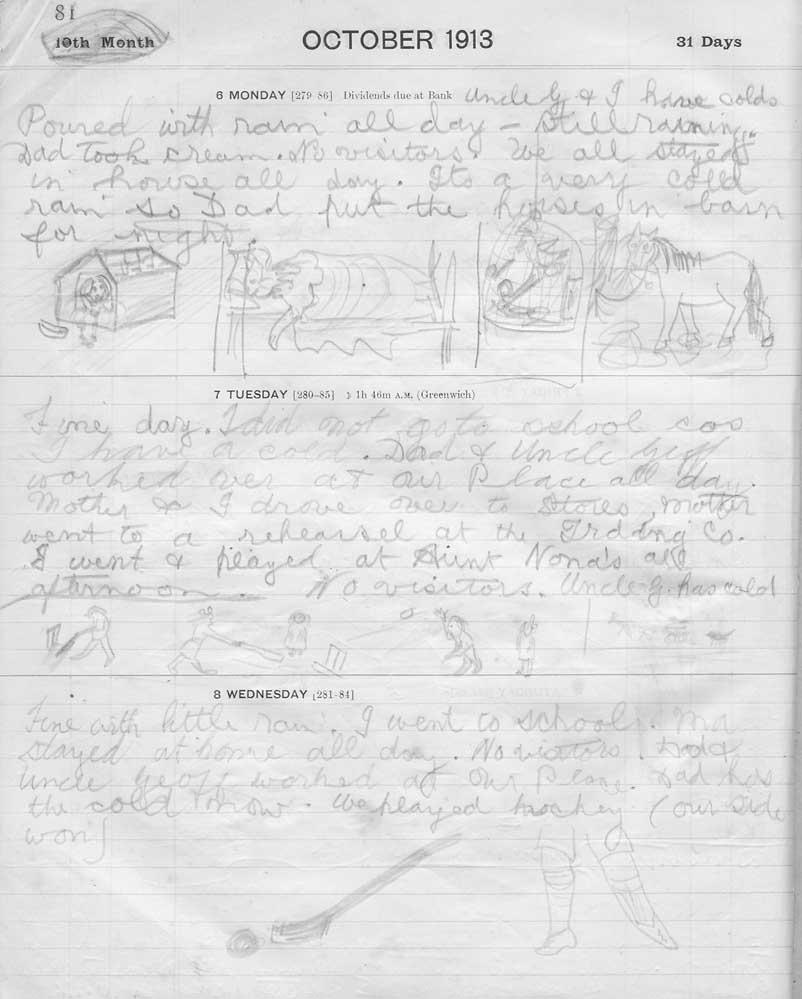 81
10th Month
OCTOBER 1913
31 Days
6 MONDAY [279-86] Dividends due at Bank Uncle G & I have colds
Poured with rain all day – still raining.
Dad took cream. No visitors. We all stayed
in house all day. Its a very cold
rain so Dad put the horses in barn
for night
7 TUESDAY [280-85] ☽ 1h 46m A.M. (Greenwich)
Fine day. I did not go to school cos
I have a cold. Dad & Uncle Geoff
worked over at our Place all day.
Mother & I drove over to Stores, Mother
went to a rehearsel at the Trding Co.
I went & played at Aunt Nona's all
afternoon. No visitors. Uncle G. has cold
8 WEDNESDAY [281-84]
Fine with little rain. I went to school. Ma
stayed at home all day. No visitors. Dad &
Uncle Geoff worked at our Place. Dad has
the cold now. We played hockey (our side
won)